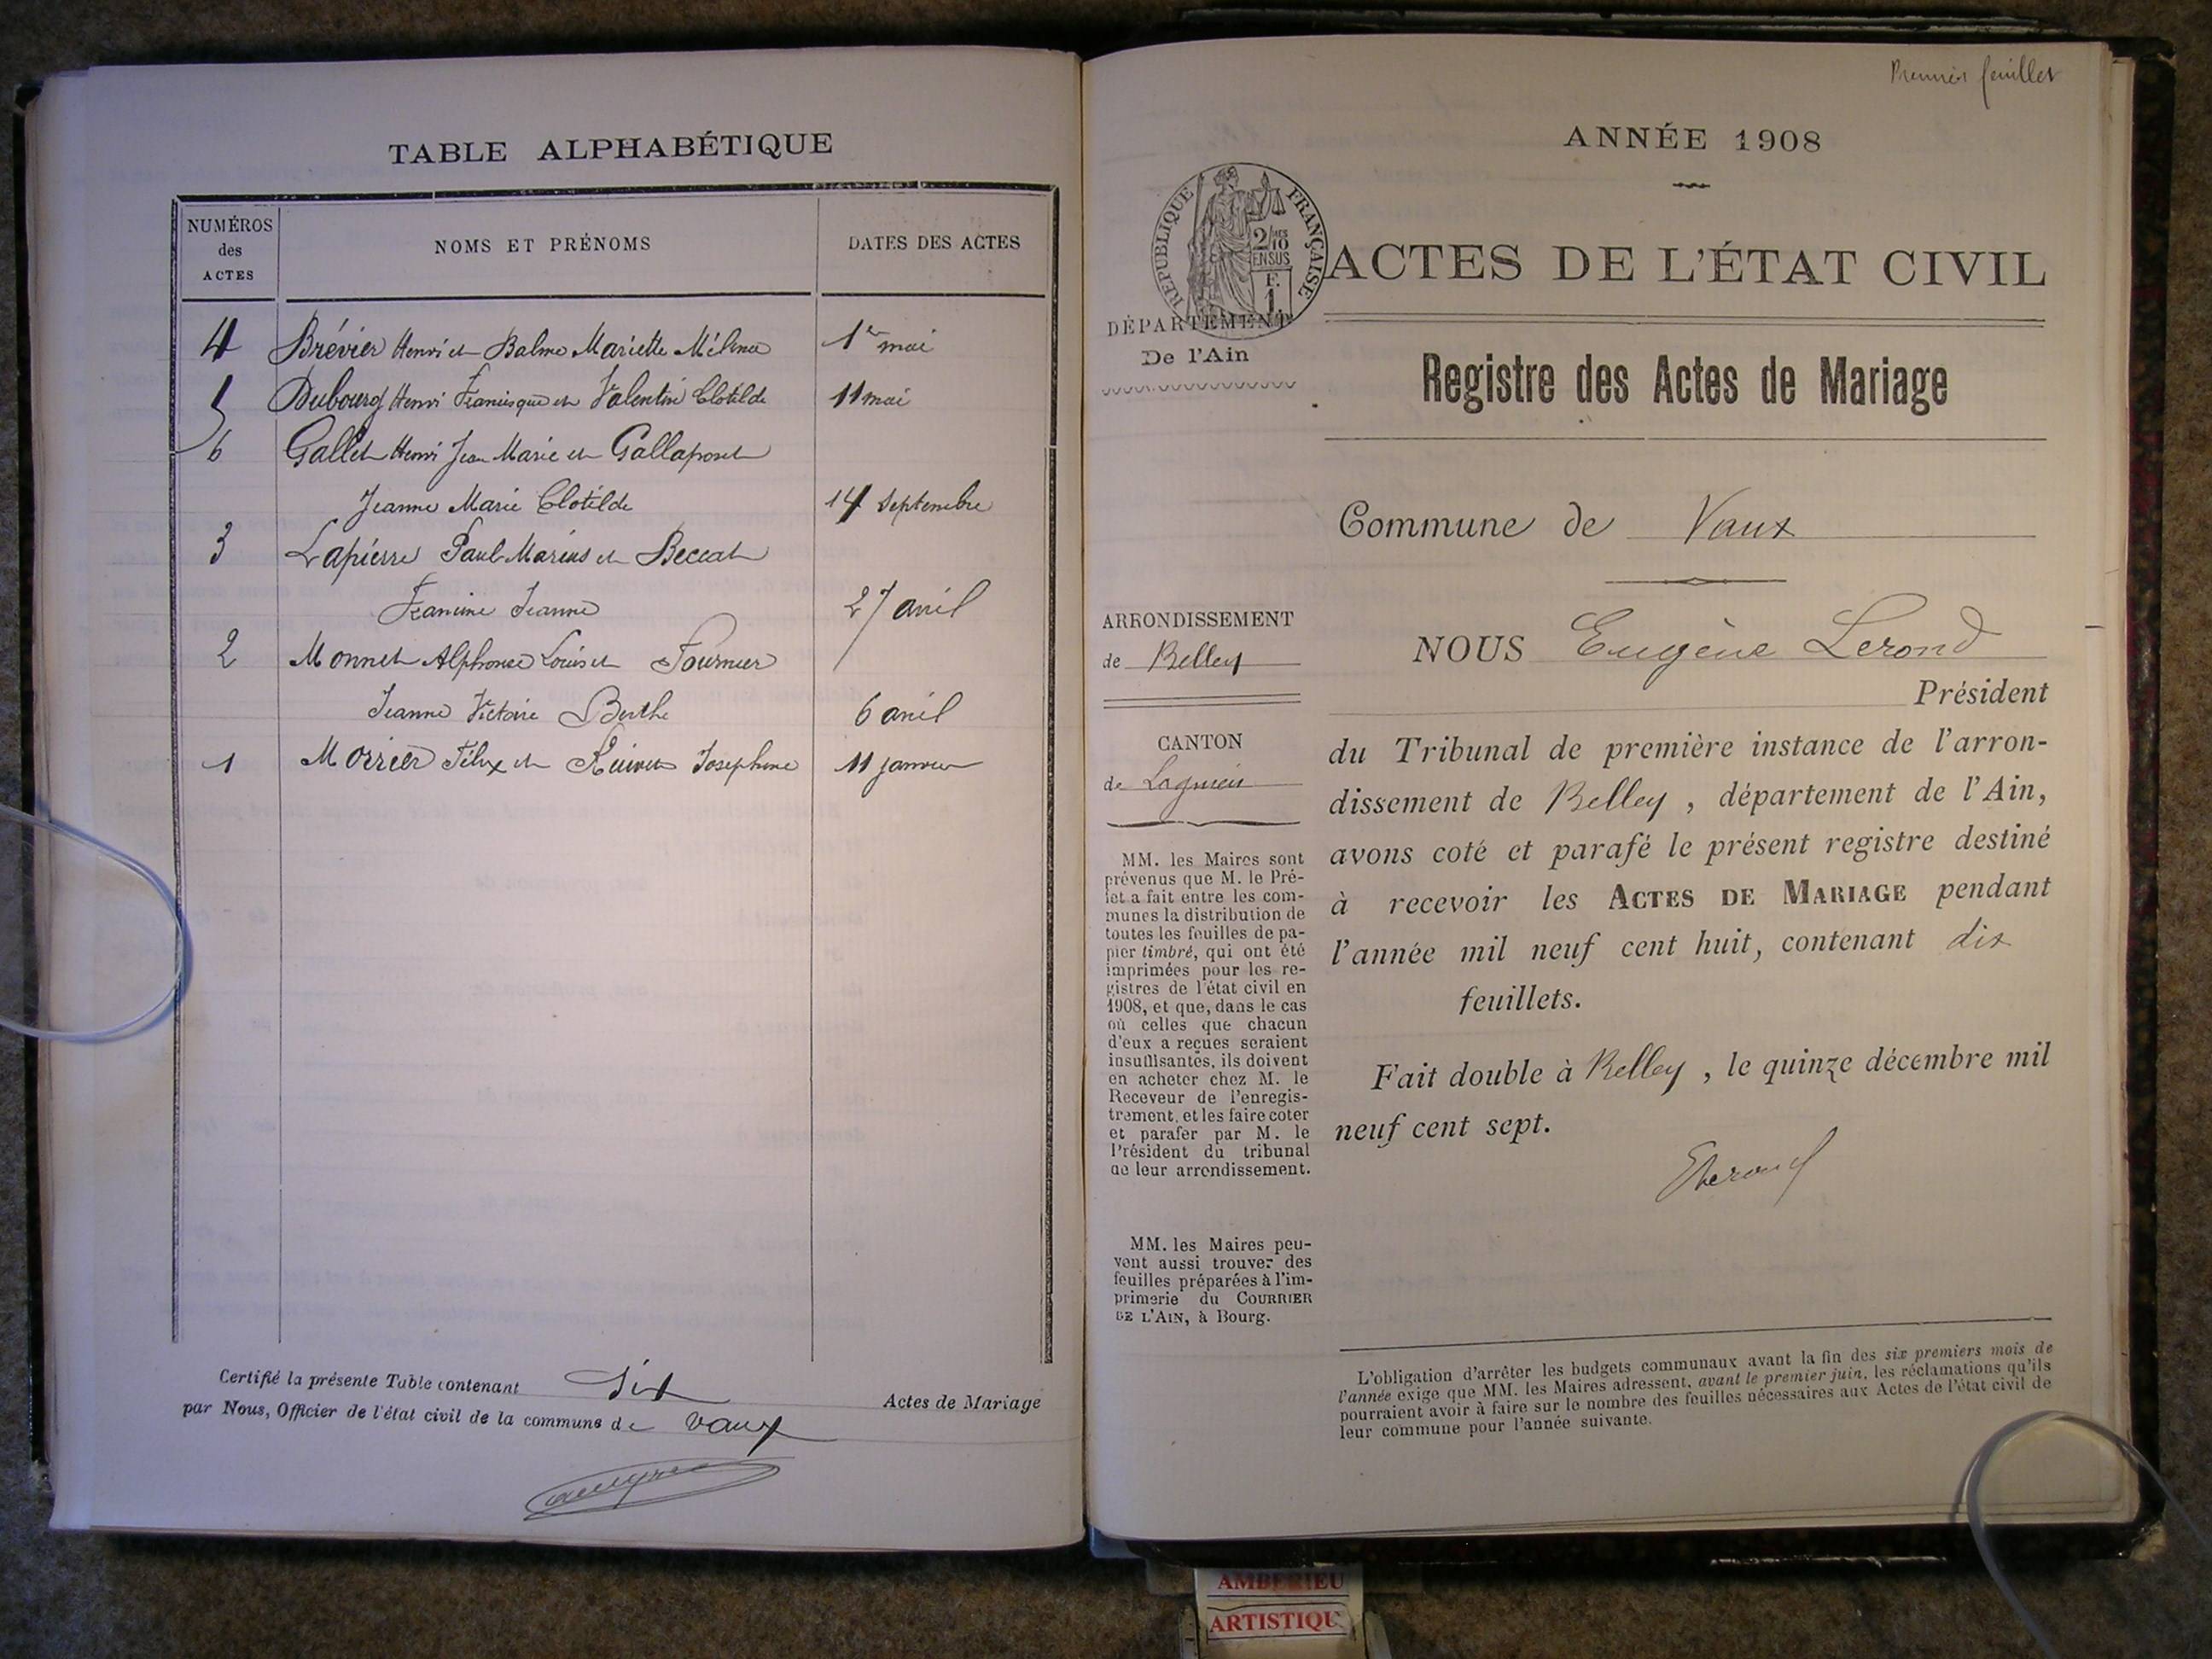 TABLE ALPHABÉTIQUE
NUMÉROS des ACTES
NOMS ET PRÉNOMS
DATES DES ACTES
4 Brévier Henri et Balme Mariette Mélina 1er mai
5 Dubourg Henri Francisque et Valentin Clotilde 11 mai
6 Gallet Henri Jean Marie et
Jeanne Marie Clotilde 14 Septembre
3 Lapierre Paul Marius et Beccat
Jeanne 27 avril
2 Monnet Alphonse Louis et Fournier
Jeanne Victoire Berthe 6 avril
1 Félix et Josephine 11 janvier
Certifié la présente Table contenant Six Actes de Mariage
par Nous, Officier de l'état civil de la commune de Vaux
Premier feuillet
ANNÉE 1908
RÉPUBLIQUE FRANÇAISE
2/10 MES
EN SUS
F.
1
ACTES DE L'ÉTAT CIVIL
DÉPARTEMENT
De l'Ain
Registre des Actes de Mariage
Commune de Vaux
ARRONDISSEMENT
de Belley
CANTON
de Lagnieu
MM. les Maires sont
prévenus que M. le Pré-
fet a fait entre les com-
munes la distribution de
toutes les feuilles de pa-
pier timbré, qui ont été
imprimées pour les re-
gistres de l'état civil en
1908, et que, dans le cas
où celles que chacun
d'eux a reçues seraient
insuffisantes, ils doivent
en acheter chez M. le
Receveur de l'enregis-
trement, et les faire coter
et parafer par M. le
Président du tribunal
de leur arrondissement.
MM. les Maires peu-
vent aussi trouver des
feuilles préparées à l'im-
primerie du COURRIER
DE L'AIN, à Bourg.
NOUS Eugène Lerond
Président
du Tribunal de première instance de l'arron-
dissement de Belley, département de l'Ain,
avons coté et parafé le présent registre destiné
à recevoir les ACTES DE MARIAGE pendant
l'année mil neuf cent huit, contenant dix
feuillets.
Fait double à Belley, le quinze décembre mil
neuf cent sept.
ELerond
L'obligation d'arrêter les budgets communaux avant la fin des six premiers mois de
l'année exige que MM. les Maires adressent, avant le premier juin, les réclamations qu'ils
pourraient avoir à faire sur le nombre des feuilles nécessaires aux Actes de l'état civil de
leur commune pour l'année suivante.
AMBERIEU
ARTISTIQU